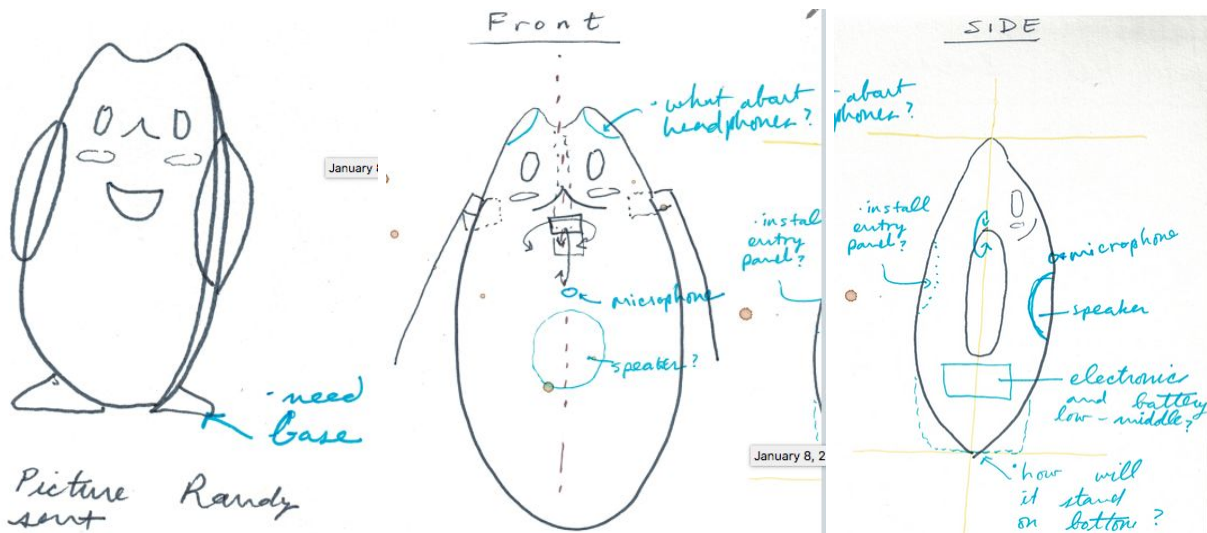 · need
base
Picture Randy
sent
January 8
Front
· what about
headphones?
microphone
speaker?
· install
entry
panel?
January 8, 2
SIDE
about
phones?
· install
entry
panel?
microphone
speaker
electronics
and battery
low-middle?
· how will
it stand
on bottom?